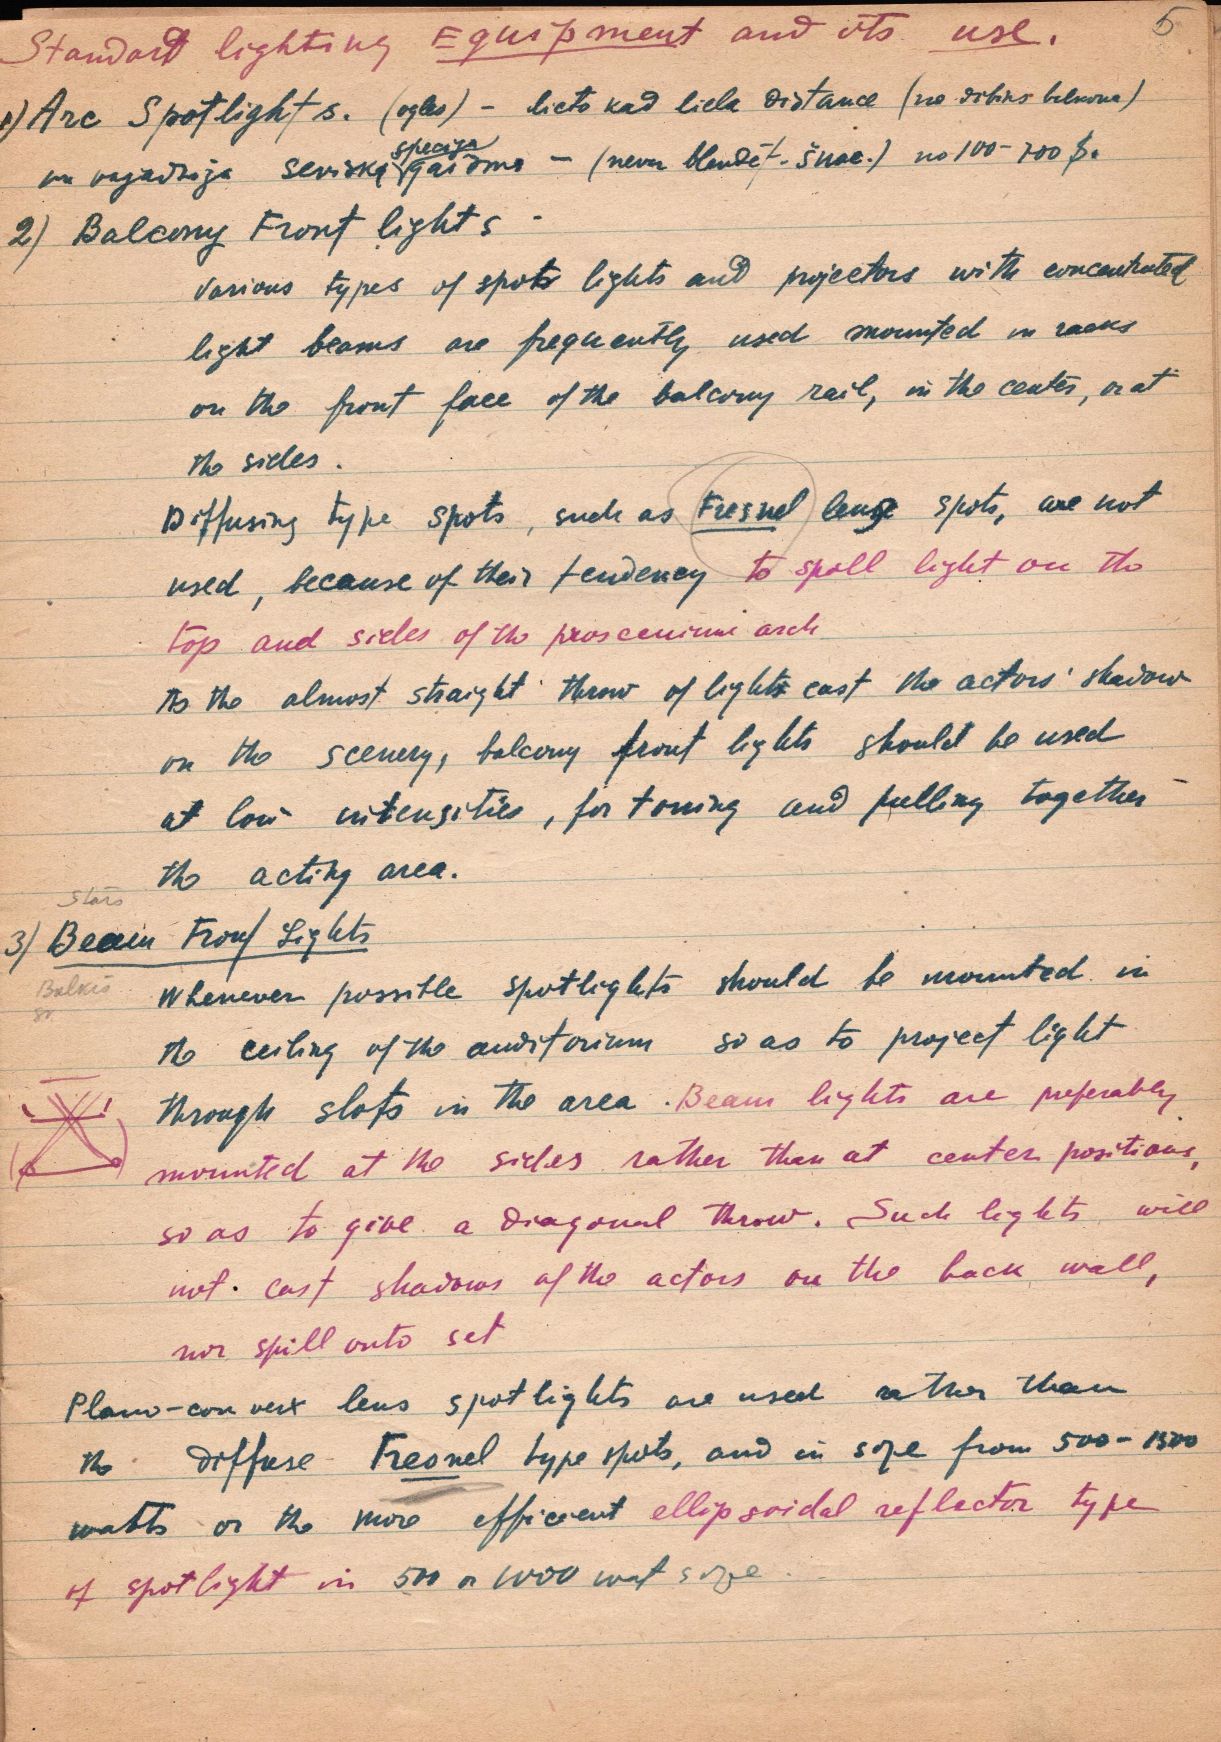 5
Standart lighting Equipment and its use.
1) Arc Spotlights. (ogles) – lieto kad liela distance (no otrā balkona)
un vajadzīga sevišķa speciga gaisma – (nevar blendēt) no 100–700 $.
2) Balcony Front lights -
various types of spots lights and projectors with concentrated
light beams are frequently used mounted in racks
on the front face of the balcony rail, in the center, or at
the sides.
Diffusing type spots, such as Fresnel lense spots, are not
used, because of their tendency to spill light on the
top and sides of the proscenium arch
As the almost straight throw of lights cast the actors' shadow
on the scenery, balcony front lights should be used
at low intensities, for toning and pulling together
the acting area.
Stars
3) Beam Front Lights
Balkis
Whenever possible spotlights should be mounted in
the ceiling of the auditorium so as to project light
through slots in the area. Beam lights are preferably
mounted at the sides rather than at center positions,
so as to give a diagonal throw. Such lights will
not cast shadows of the actors on the back wall,
nor spill onto set
Plano-convex lens spotlights are used rather than
the diffuse Fresnel type spots, and in size from 500–1500
watts or the more efficient ellipsoidal reflector type
of spotlight in 500 or 1000 wat size.